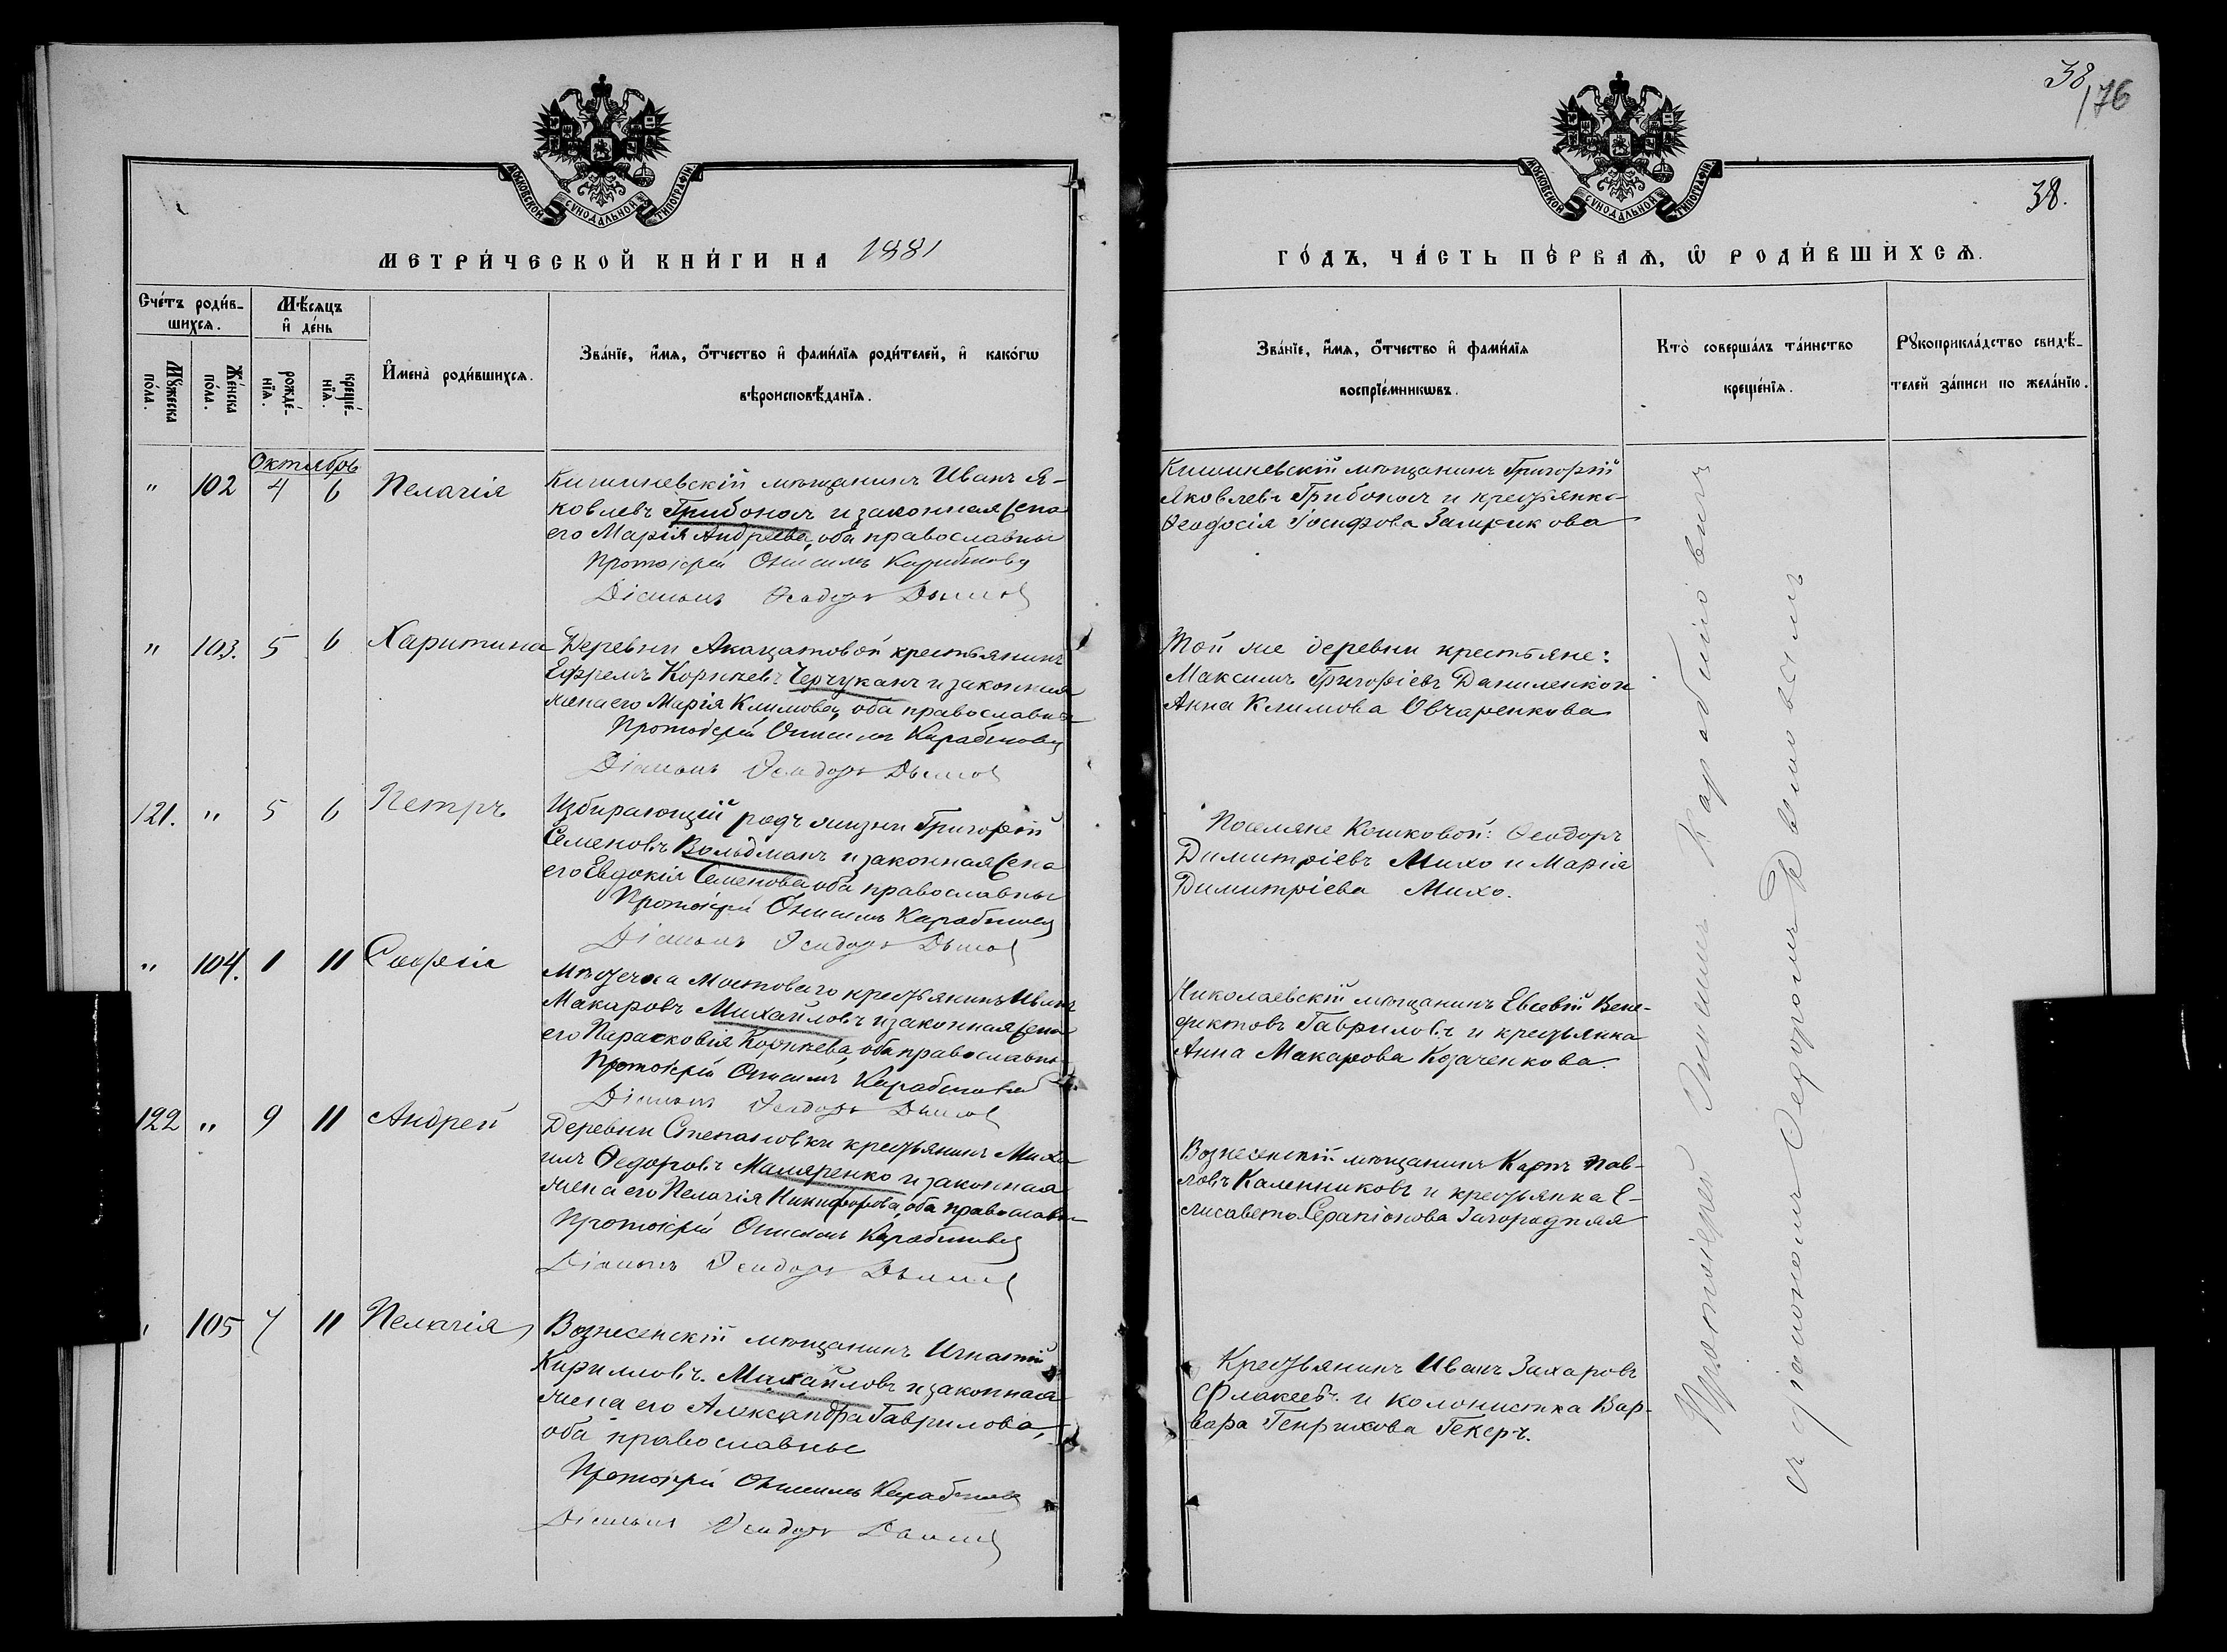 38/76
МОСКОВСКОЙ СѴНОДАЛЬНОЙ ТИПОГРАФІИ.
МОСКОВСКОЙ СѴНОДАЛЬНОЙ ТИПОГРАФІИ.
38.
МЕТРИ́ЧЕСКОЙ КНИ́ГИ НА 1881
ГО́ДЪ, ЧА́СТЬ ПЕ́РВАѦ, Ѡ҃ РОДИ́ВШИХСѦ.
Сче́тъ роди́в-
шихсѧ.
Мꙋ́жеска по́ла.
Же́нска по́ла.
Мѣ́сѧцъ
и҆ де́нь
рожде́-
нїѧ.
креще́-
нїѧ.
И҆мена̀ роди́вшихсѧ.
Зва́нїе, и҆́мѧ, ѻ҆́тчество и҆ фами́лїѧ роди́телей, и҆ како́гѡ
вѣроисповѣ́данїѧ.
Зва́нїе, и҆́мѧ, ѻ҆́тчество и҆ фами́лїѧ
воспрїе́мникѡвъ.
Кто̀ соверша́лъ та́инство
креще́нїѧ.
Рꙋкоприкла́дство свидѣ́-
телей за́писи по жела́нїю.
Октябрь
" 102 4 6 Пелагія
Кишиневскій мѣщанинъ Иванъ Я-
ковлевъ Грибоносъ и законная жена
его Марія Андреева, оба православные
Протоіерей Онисимъ Карабиновъ
Діаконъ Ѳеодоръ
Кишиневскій мѣщанинъ Григорій
Яковлевъ Грибоносъ и крестьянка
Ѳеодосія Іосифова
" 103. 5 6 Харитина
Деревни Акацатовой крестьянинъ
Ефремъ Корнѣевъ Черчуканъ и законная
жена его Марія Климова, оба православные
Протоіерей Онисимъ Карабиновъ
Діаконъ Ѳеодоръ
Той же деревни крестьяне:
Максимъ Григоріевъ Даниленко и
Анна Климова Овчаренкова
121. " 5 6 Петръ
Избирающій родъ жизни Григорій
Семеновъ Вольдманъ и законная жена
его Евдокія Семенова оба православные
Протоіерей Онисимъ Карабиновъ
Діаконъ Ѳеодоръ
Поселяне Кошковой: Ѳеодоръ
Димитріевъ Михо и Марія
Димитріева Михо.
" 104. 1 11 Софія
Мѣстечка Мостоваго крестьянинъ Иванъ
Макаровъ Михайловъ и законная жена
его Парасковія Корнѣева, оба православные
Протоіерей Онисимъ Карабиновъ
Діаконъ Ѳеодоръ
Николаевскій мѣщанинъ Евсевій Вене-
диктовъ Гавриловъ и крестьянка
Анна Макарова Козаченкова.
122 " 9 11 Андрей
Деревни Степановки крестьянинъ Миха-
илъ Ѳедоровъ Маляренко и законная
жена его Пелагія Никифорова, оба православные
Протоіерей Онисимъ Карабиновъ
Діаконъ Ѳеодоръ
Вознесенскій мѣщанинъ Карпъ Пав-
ловъ Каленниковъ и крестьянка Е-
лисавета Серапіонова Загородняя
" 105 7 11 Пелагія
Вознесенскій мѣщанинъ Игнатій
Кирилловъ Михайловъ и законная
жена его Александра Гаврилова,
оба православные
Протоіерей Онисимъ Карабиновъ
Діаконъ Ѳеодоръ
Крестьянинъ Иванъ Захаровъ
Флакеевъ и колонистка Вар-
вара Генрихова Гекеръ.
Протоіерей Онисимъ Карабиновичъ
съ діакономъ Ѳедоромъ